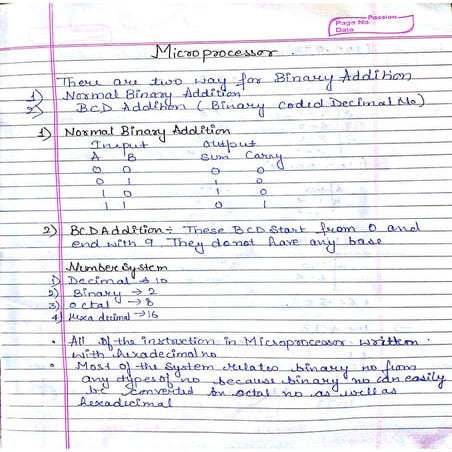 Passion
Page No
Date
Microprocessor
There are two way for Binary Addition
1) Normal Binary Addition
2) BCD Addition (Binary Coded Decimal No)
1) Normal Binary Addition
Input Output
A B Sum Carry
0 0 0 0
0 1 1 0
1 0 1 0
1 1 0 1
2) BCD Addition:- These BCD Start from 0 and
end with 9. They donot have any base
Number System
1) Decimal → 10
2) Binary → 2
3) octal → 8
4) Hexa decimal → 16
• All of the instruction in Microprocessor written
with hexadecimal no
• Most of the System relates binary no from
any types of no because binary no can easily
be converted in octal no as well as
hexadecimal